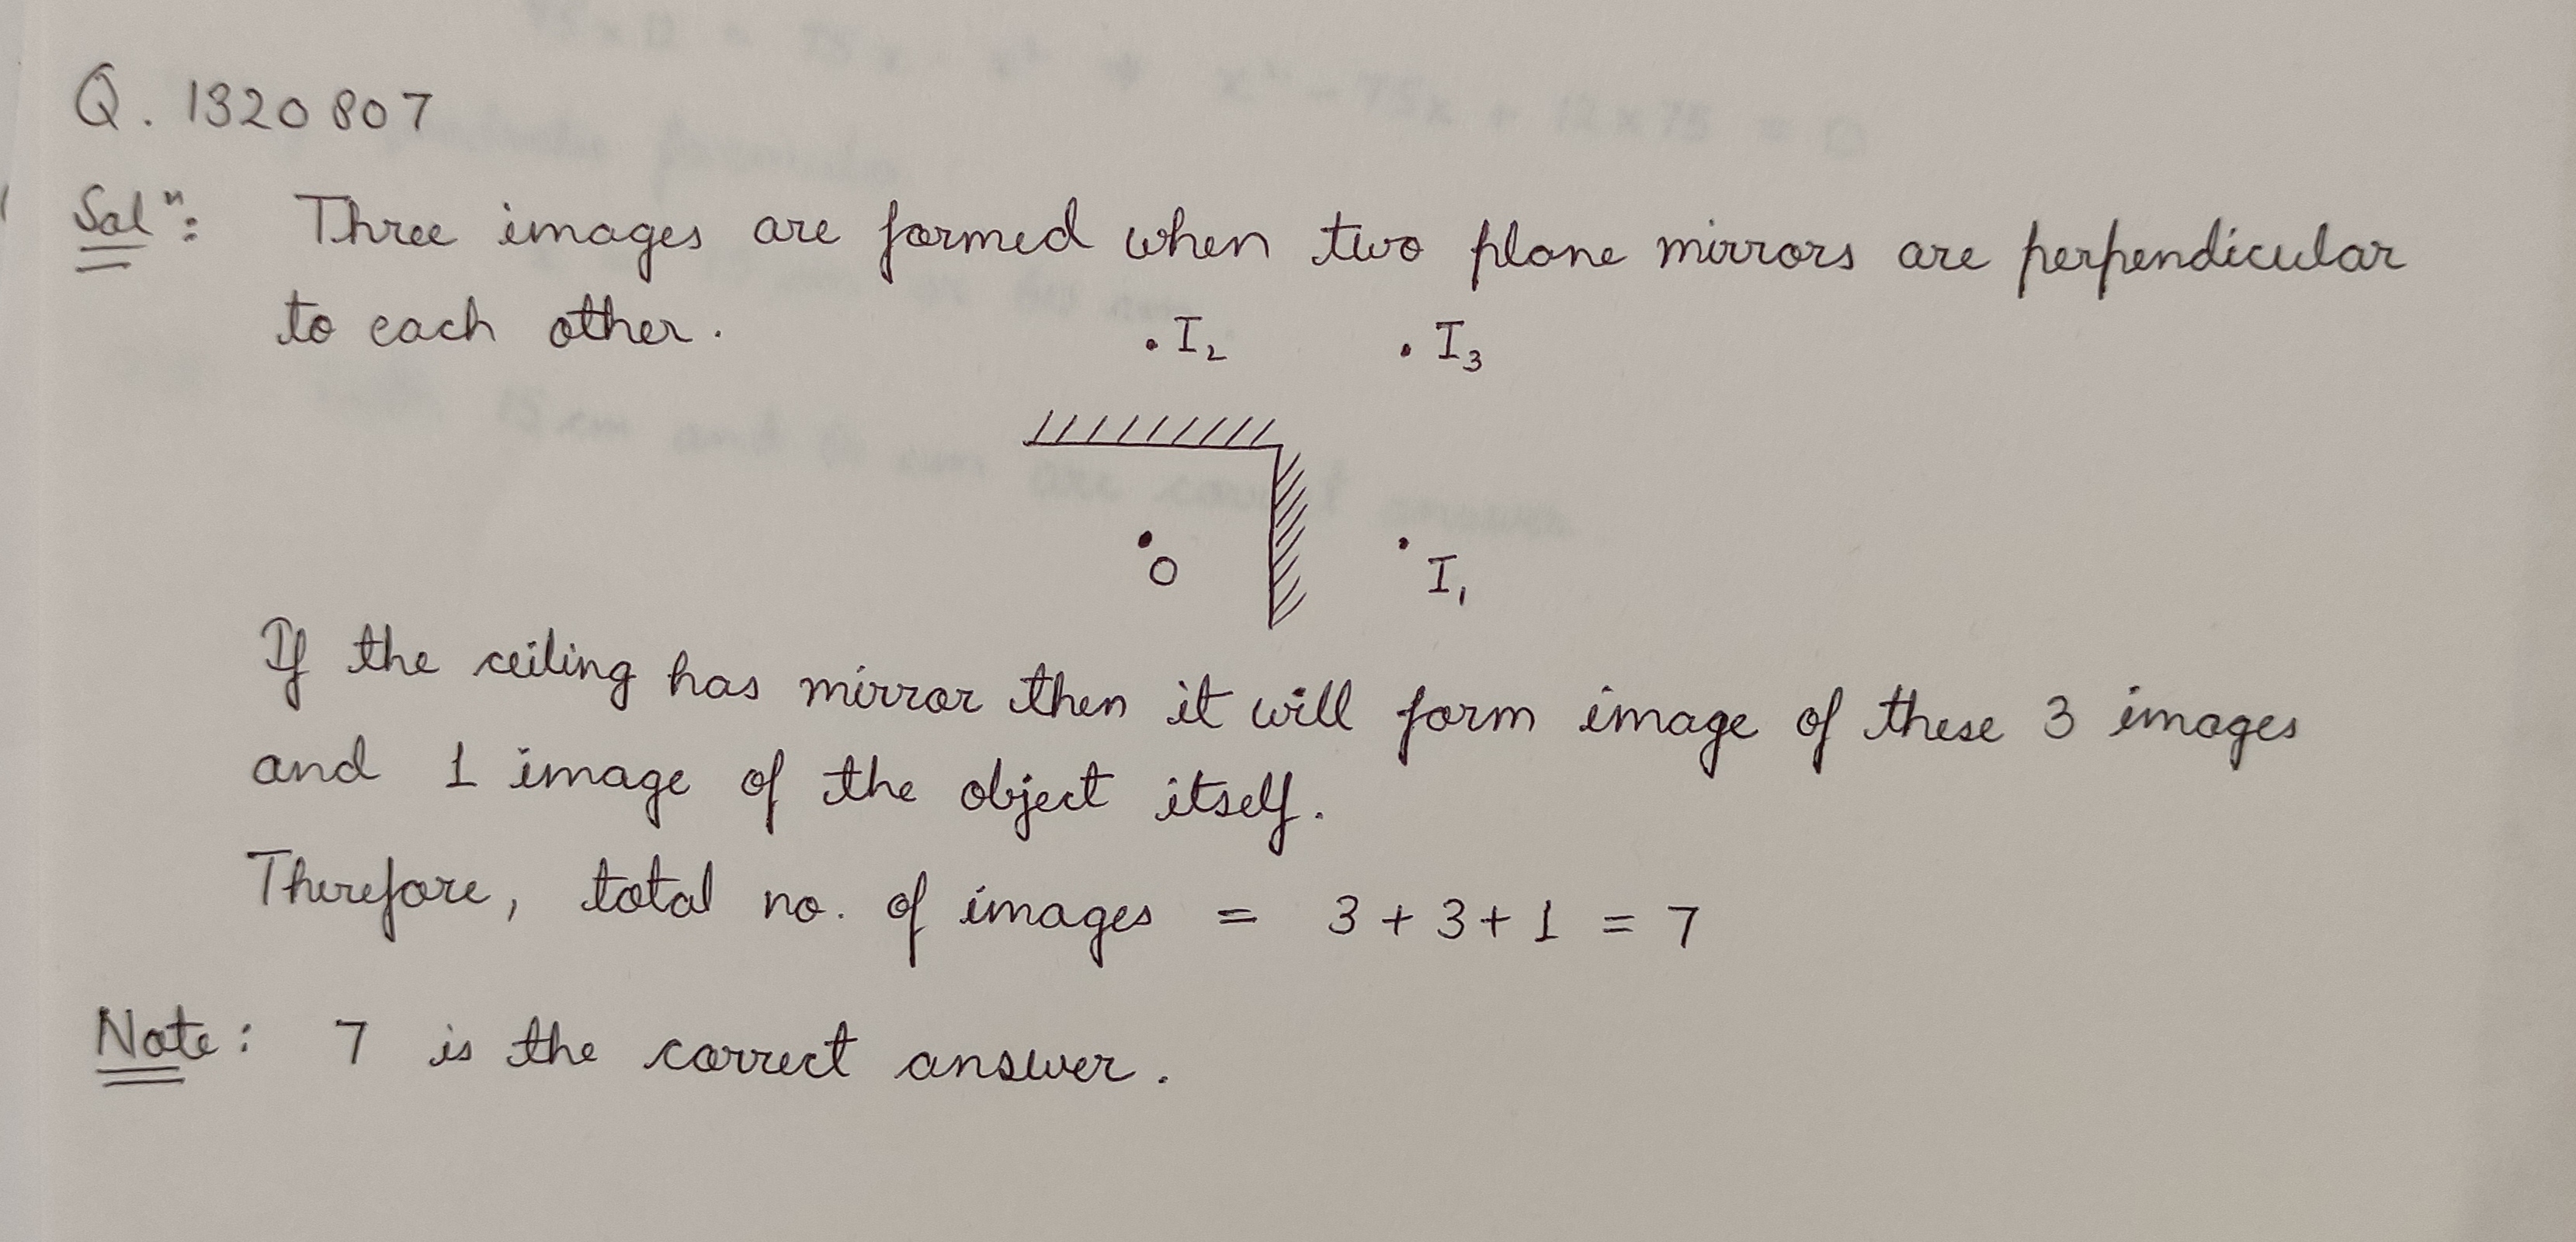 Q. 1320807
Solⁿ: Three images are formed when two plane mirrors are perpendicular
to each other.
. I₂ . I₃
O I₁
If the ceiling has mirror then it will form image of these 3 images
and 1 image of the object itself.
Therefore, total no. of images = 3 + 3 + 1 = 7
Note: 7 is the correct answer.